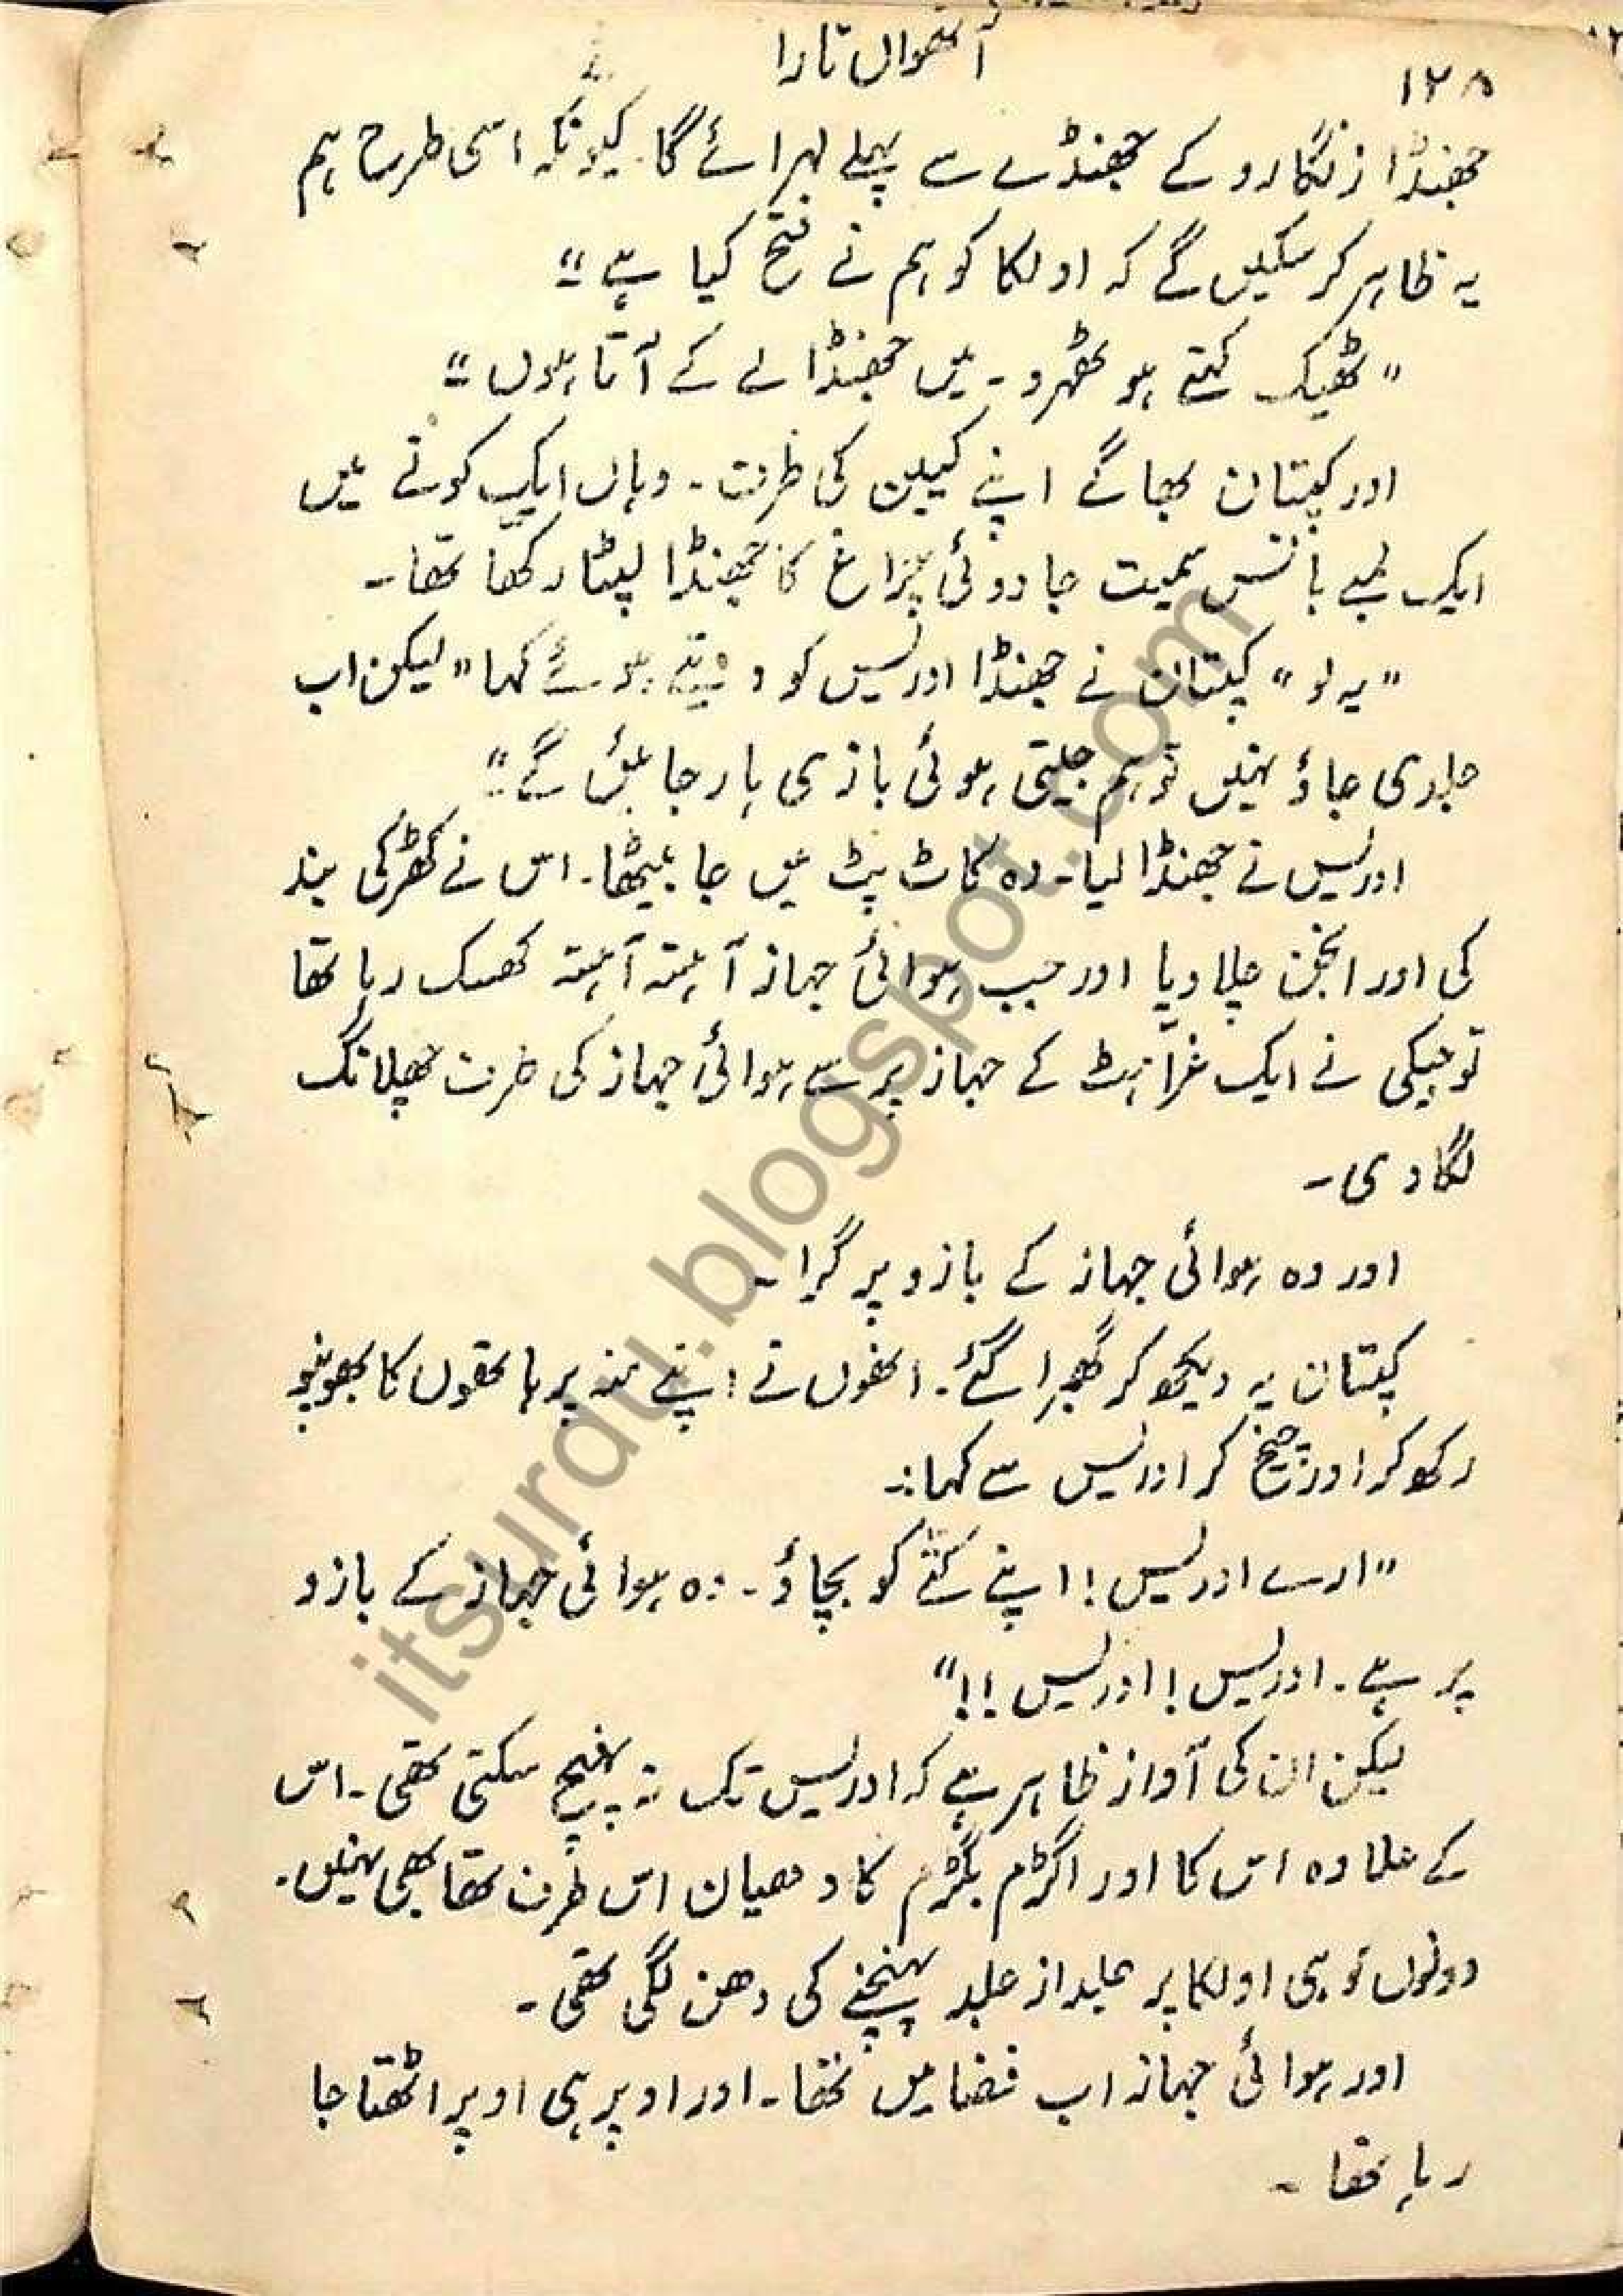 آٹھواں تارا
۱۲۸
جھنڈا زنگارو کے جھنڈے سے پہلے لہرائے گا۔ کیونکہ اسی طرح ہم
یہ ظاہر کر سکیں گے کہ اولکا کو ہم نے فتح کیا ہے"
"ٹھیک کہتے ہو ٹھہرو۔ میں جھنڈا لے کے آتا ہوں"
اور کپتان بھاگے اپنے کیبن کی طرف۔ وہاں ایک کونے میں
ایک لمبے بانس سمیت جادوئی چراغ کا جھنڈا لپٹا رکھا تھا۔
"یہ لو" کپتان نے جھنڈا ادریس کو دیتے ہوئے کہا "لیکن اب
جلدی جاؤ نہیں تو ہم جیتی ہوئی بازی ہار جائیں گے"
ادریس نے جھنڈا لیا۔ وہ کاٹ پٹ میں جا بیٹھا۔ اس نے کھڑکی بند
کی اور انجن چلا دیا اور جب ہوائی جہاز آہستہ آہستہ کھسک رہا تھا
تو جیکی نے ایک غراہٹ کے جہاز پر سے ہوائی جہاز کی طرف چھلانگ
لگا دی۔
اور وہ ہوائی جہاز کے بازو پر گرا۔
کپتان یہ دیکھ کر گھبرا گئے۔ انھوں نے اپنے منہ پر ہاتھوں کا بھونپو
رکھ کر اور چیخ کر ادریس سے کہا:۔
"ارے ادریس! اپنے کتے کو بچاؤ۔ وہ ہوائی جہاز کے بازو
پر ہے۔ ادریس! ادریس!!"
لیکن ان کی آواز ظاہر ہے کہ ادریس تک نہ پہنچ سکتی تھی۔ اس
کے علاوہ اس کا اور اگڑم بگڑم کا دھیان اس طرف تھا بھی نہیں۔
دونوں تو ہی اولکا پر جلد از جلد پہنچنے کی دھن لگی تھی۔
اور ہوائی جہاز اب فضا میں تھا۔ اور اوپر ہی اوپر اٹھتا جا
رہا تھا۔
itsurdu.blogspot.com